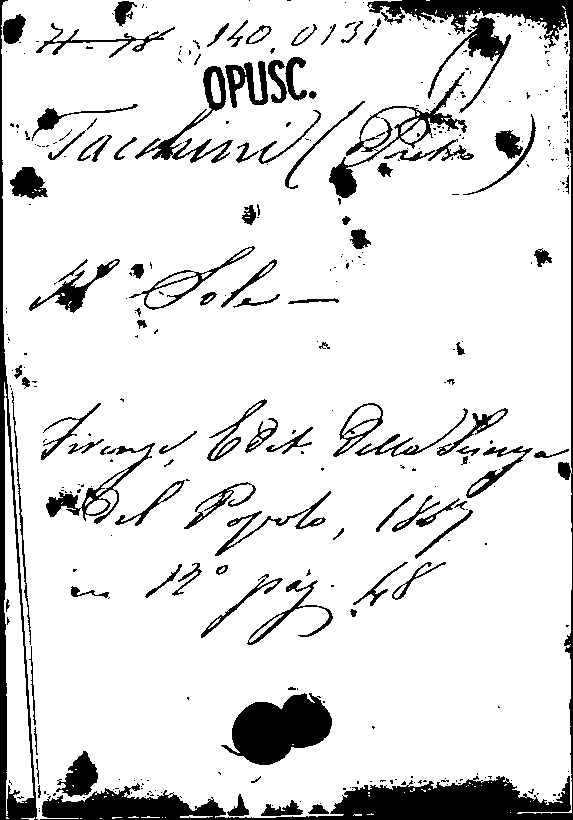 H-78 140.0131
OPUSC.
Tacchini (Pietro)
Il Sole —
Firenze, Edit. Della Scienza
Del Popolo, 1869
in 12° pag. 48